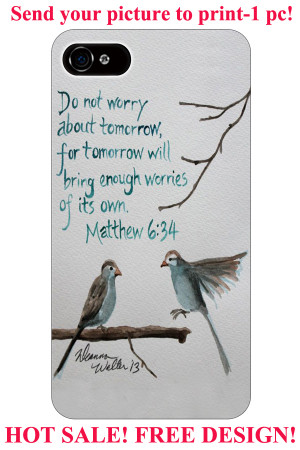 Send your picture to print-1 pc!
Do not worry
about tomorrow,
for tomorrow will
bring enough worries
of its own.
Matthew 6:34
Deanna
Waller 13
HOT SALE! FREE DESIGN!